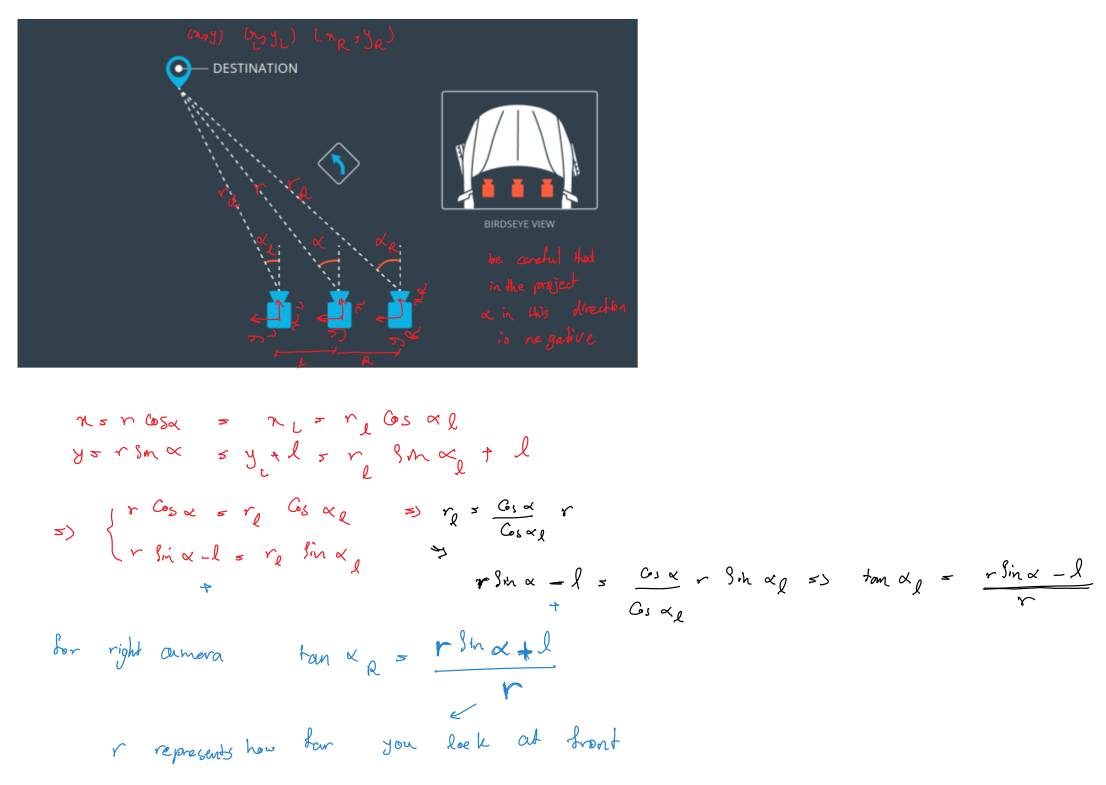 (x,y) (x_L, y_L) (x_R, y_R)
DESTINATION
r_l r r_R
α_l α α_R
BIRDSEYE VIEW
be careful that
in the project
α in this direction
is negative
x_L x x_R
y_L y y_R
l R
x = r cosα = x_L = r_l cos α_l
y = r sin α = y_L + l = r_l sin α_l + l
=> { r cos α = r_l cos α_l => r_l = cos α / cos α_l r
r sin α - l = r_l sin α_l =>
+
r sin α - l = cos α / cos α_l r sin α_l => tan α_l = r sin α - l / r
+
for right camera tan α_R = r sin α + l / r
r represents how far you look at front